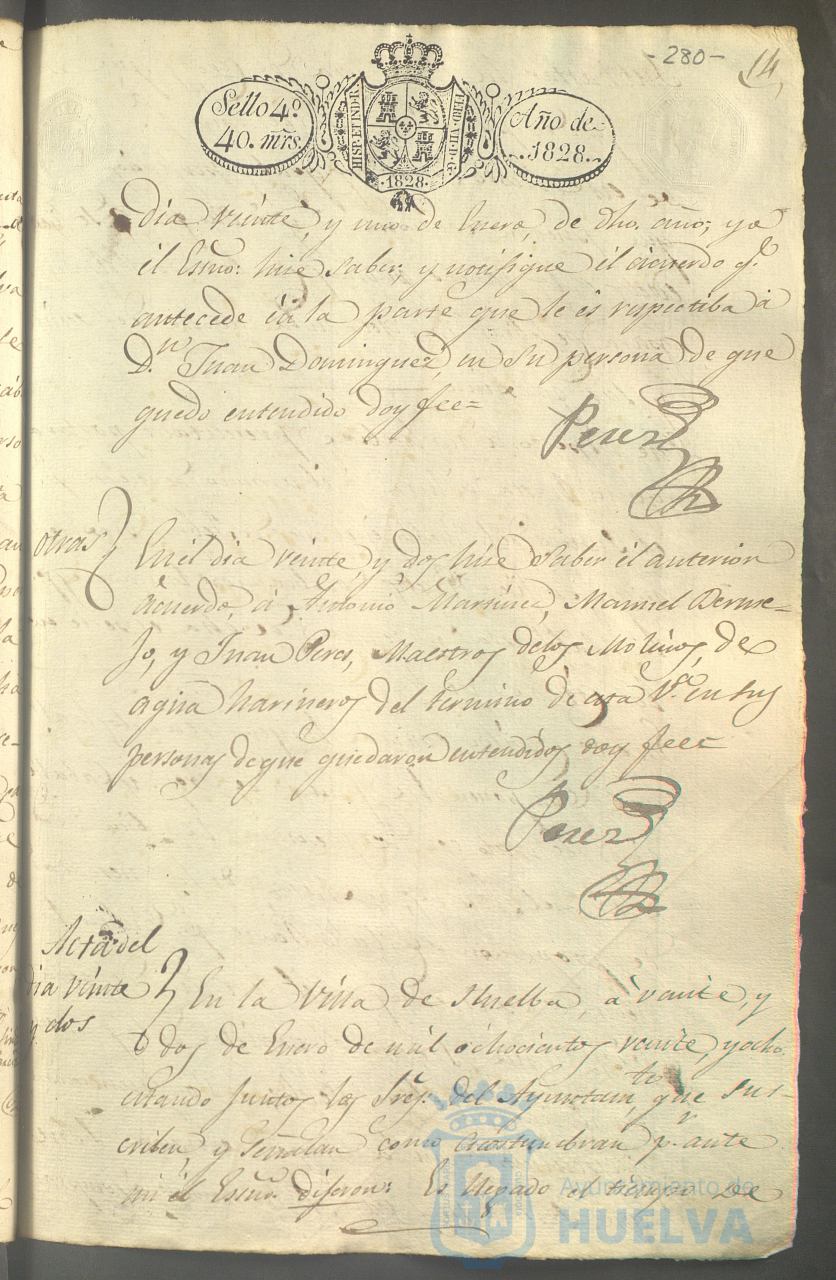 -280-
14
Sello 4.º
40. mrs.
HISP. ET IND. R.
FERD. VII. D. G.
1828
Año de
1828.
Dia veinte, y uno de Enero, de dho. año; yo
él Essno: hise saber, y notifique él acuerdo q.e
antecede én la parte que le és respectiba á
D.n Juan Dominguez, en su persona de que
quedo entendido doy fee=
Perez
otras
En él dia veinte, y dos hise saber él anterior
ácuerdo, á Antonio Martinez, Manuel Berme=
jo, y Juan Peres, Maestros delos Molinos, de
agua harineros del termino de esta V.a en sus
personas de que quedaron entendidos doy fee=
Perez
Acta del
dia veinte
y dos
En la Villa de Huelba, á veinte, y
dos de Enero de mil ochocientos veinte, yocho
estando juntos los Sres. del Ayuntam.to que sus-
criben, y señalan como acostumbran p.r ante
mi él Essno. dijeron: Es llegado el tiempo de
Ayuntamiento de
HUELVA